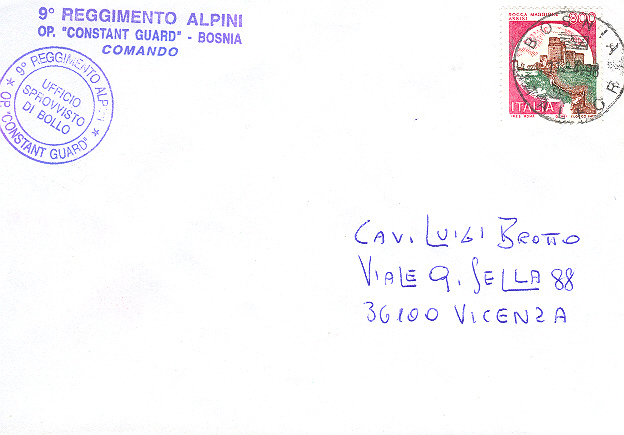 9° REGGIMENTO ALPINI
OP. "CONSTANT GUARD" - BOSNIA
COMANDO
★ 9° REGGIMENTO ALPINI ★
OP. "CONSTANT GUARD"
UFFICIO
SPROVVISTO
DI BOLLO
ROCCA MAGGIORE
ASSISI
BOSNIA
ITALIA
CAV. LUIGI BROTTO
VIALE Q. SELLA 88
36100 VICENZA